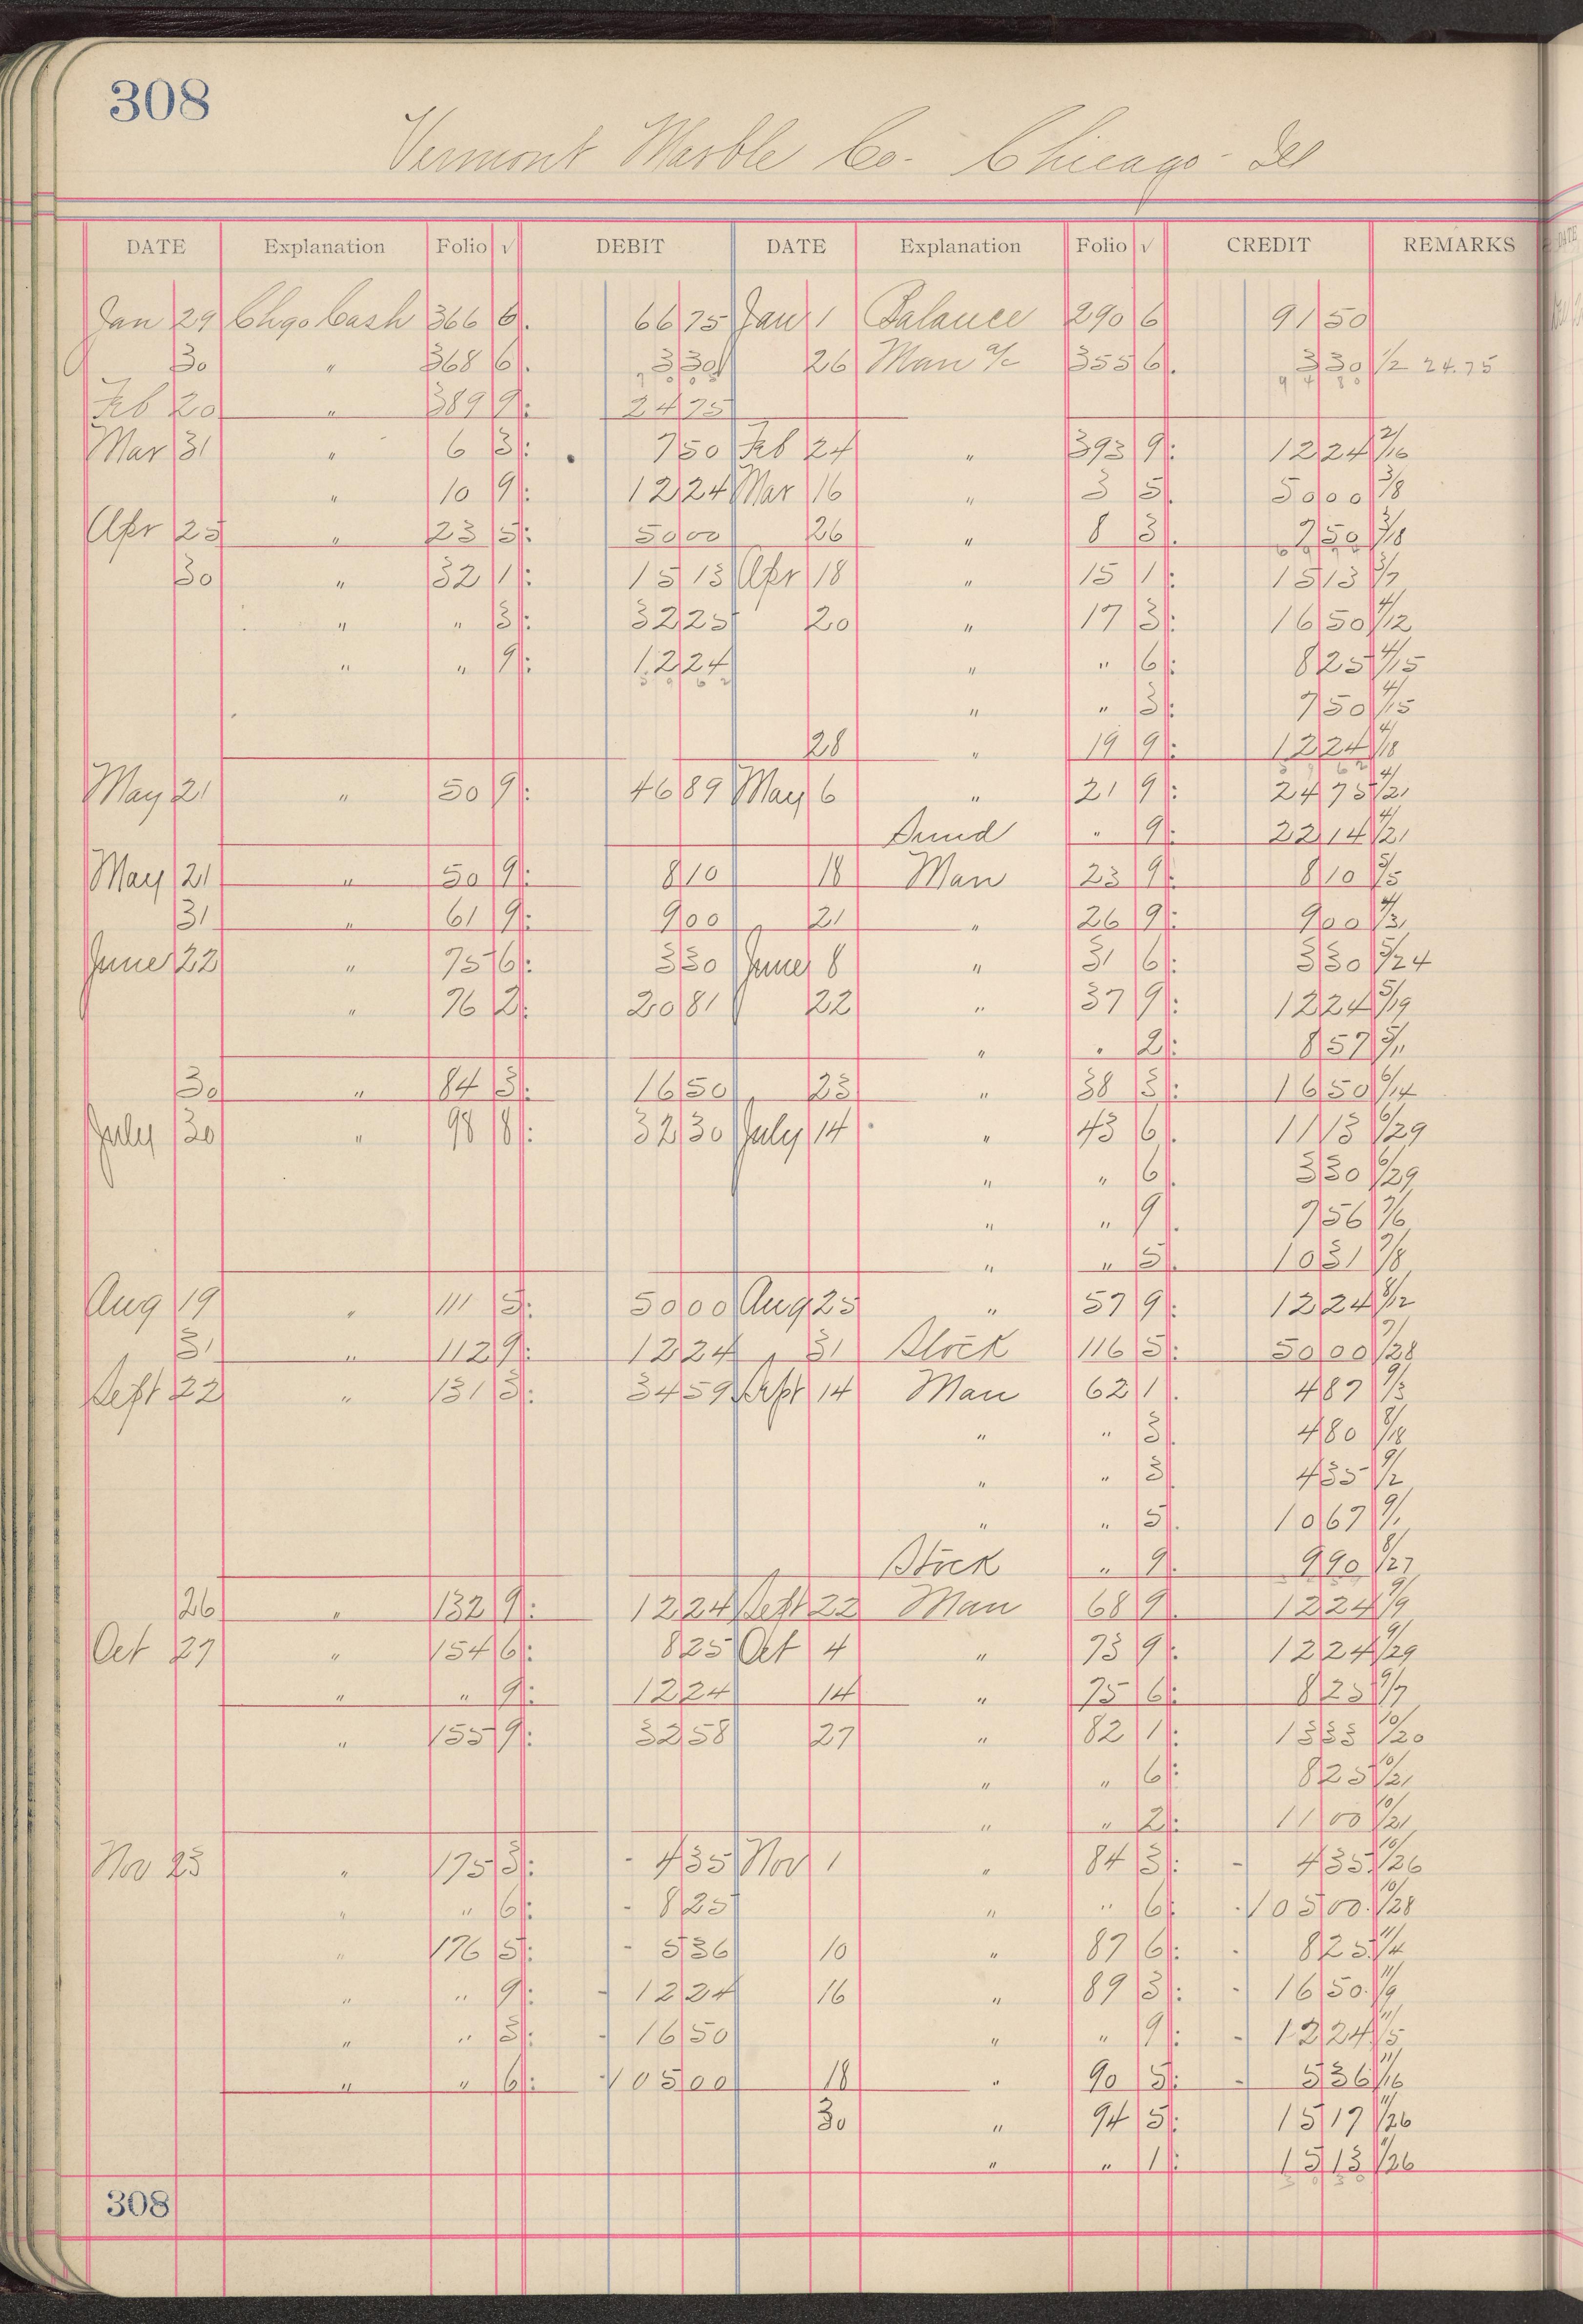 308
Vermont Marble Co. Chicago Ill
DATE Explanation Folio √ DEBIT DATE Explanation Folio √ CREDIT REMARKS
Jan 29 Chgo Cash 366 6. 66 75 Jan 1 Balance 290 6 91 50
30 " 368 6. 3 30 26 Man a/c 355 6. 3 30 1/2 24.75
Feb 20 " 389 9: 24 75
Mar 31 " 6 3: 7 50 Feb 24 " 393 9: 12 24 2/16
" 10 9: 12 24 Mar 16 " 3 5. 50 00 3/8
Apr 25 " 23 5: 50 00 26 " 8 3. 7 50 3/18
30 " 32 1: 15 13 Apr 18 " 15 1: 15 13
" " 3: 32 25 20 " 17 3: 16 50 4/12
" " 9: 12 24 " " 6: 8 25 4/15
" " 3: 7 50 4/15
28 " 19 9: 12 24 4/18
May 21 " 50 9: 46 89 May 6 " 21 9: 24 75 4/21
Sund " 9: 22 14 4/21
May 21 " 50 9: 8 10 18 Man 23 9: 8 10 5/5
31 " 61 9: 9 00 21 " 26 9: 9 00
June 22 " 75 6: 3 30 June 8 " 31 6: 3 30 5/24
" 76 2: 20 81 22 " 37 9: 12 24 5/19
" " 2: 8 57
30 " 84 3: 16 50 23 " 38 3: 16 50 6/14
July 30 " 98 8: 32 30 July 14 " 43 6. 11 13 6/29
" " 6. 3 30 6/29
" " 9. 7 56 7/6
" " 5. 10 31 7/8
Aug 19 " 111 5: 50 00 Aug 25 " 57 9: 12 24 8/12
31 " 112 9: 12 24 31 Stock 116 5: 50 00 7/28
Sept 22 " 131 3: 34 59 Sept 14 Man 62 1. 4 87 9/3
" " 3. 4 80 8/18
" " 3. 4 35 9/2
" " 5. 10 67 9/1
Stock " 9. 9 90 8/27
26 " 132 9: 12 24 Sept 22 Man 68 9. 12 24 9/9
Oct 27 " 154 6: 8 25 Oct 4 " 73 9: 12 24 9/29
" " 9: 12 24 14 " 75 6: 8 25 9/7
" 155 9: 32 58 27 " 82 1: 13 33 10/20
" " 6: 8 25 10/21
" " 2: 11 00 10/21
Nov 23 " 175 3: - 4 35 Nov 1 " 84 3: - 4 35 10/26
" " 6: - 8 25 " " 6: - 105 00 10/28
" 176 5: - 5 36 10 " 87 6: - 8 25 11/4
" " 9: - 12 24 16 " 89 3: - 16 50 11/9
" " 3: - 16 50 " " 9: - 12 24 11/5
" " 6: - 105 00 18 " 90 5: - 5 36 11/16
30 " 94 5: 15 17 11/26
" " 1: 15 13 11/26
308